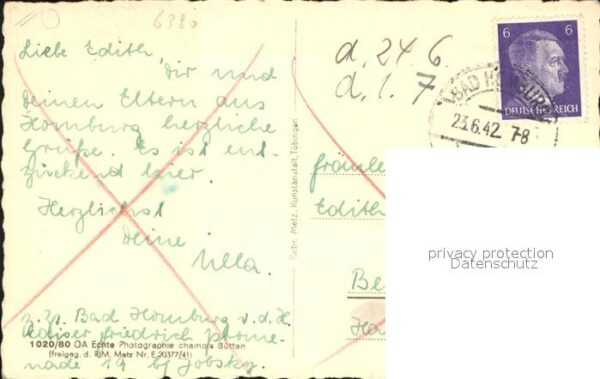 6380
Liebe Edith,
Dir und
Deinen Eltern aus
Homburg herzliche
Grüße. Es ist ent-
zückend hier.
Herzlichst
Deine
Ulla.
z. Zt. Bad Homburg v. d. H.
Kaiser Friedrich Prome-
nade 19 b/ Jobsky.
1020/80 OA Echte Photographie chamois Bütten
(freigeg. d. RLM. Metz Nr. E 20377/41)
Gebr. Metz, Kunstanstalt, Tübingen
d. 24. 6
d. 1. 7
6 6
DEUTSCHES REICH
BAD HOMBURG
23.6.42. 7-8
Fräulein
Edith
Be
Ha
privacy protection
Datenschutz